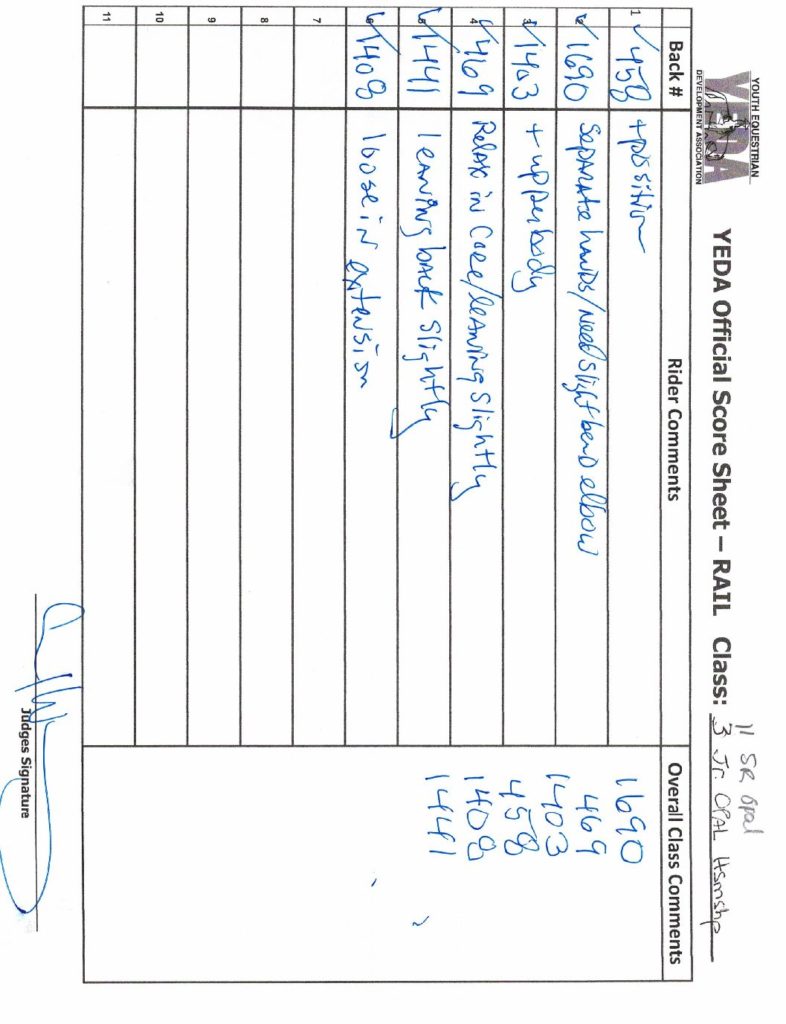 YOUTH EQUESTRIAN
YEDA
DEVELOPMENT ASSOCIATION
YEDA Official Score Sheet – RAIL Class:
11 SR opal
3 Jr OPAL Hsmshp
Back # Rider Comments Overall Class Comments
1 ✓458 + position 1690
2 ✓1690 Separate hands/Need slight bend elbow 469
3 ✓1403 + upper body 1403
4 ✓469 Relax in Core/leaning slightly 458
5 ✓1441 leaning back slightly 1408
6 ✓1408 loose in extension 1441
7
8
9
10
11
Judges Signature